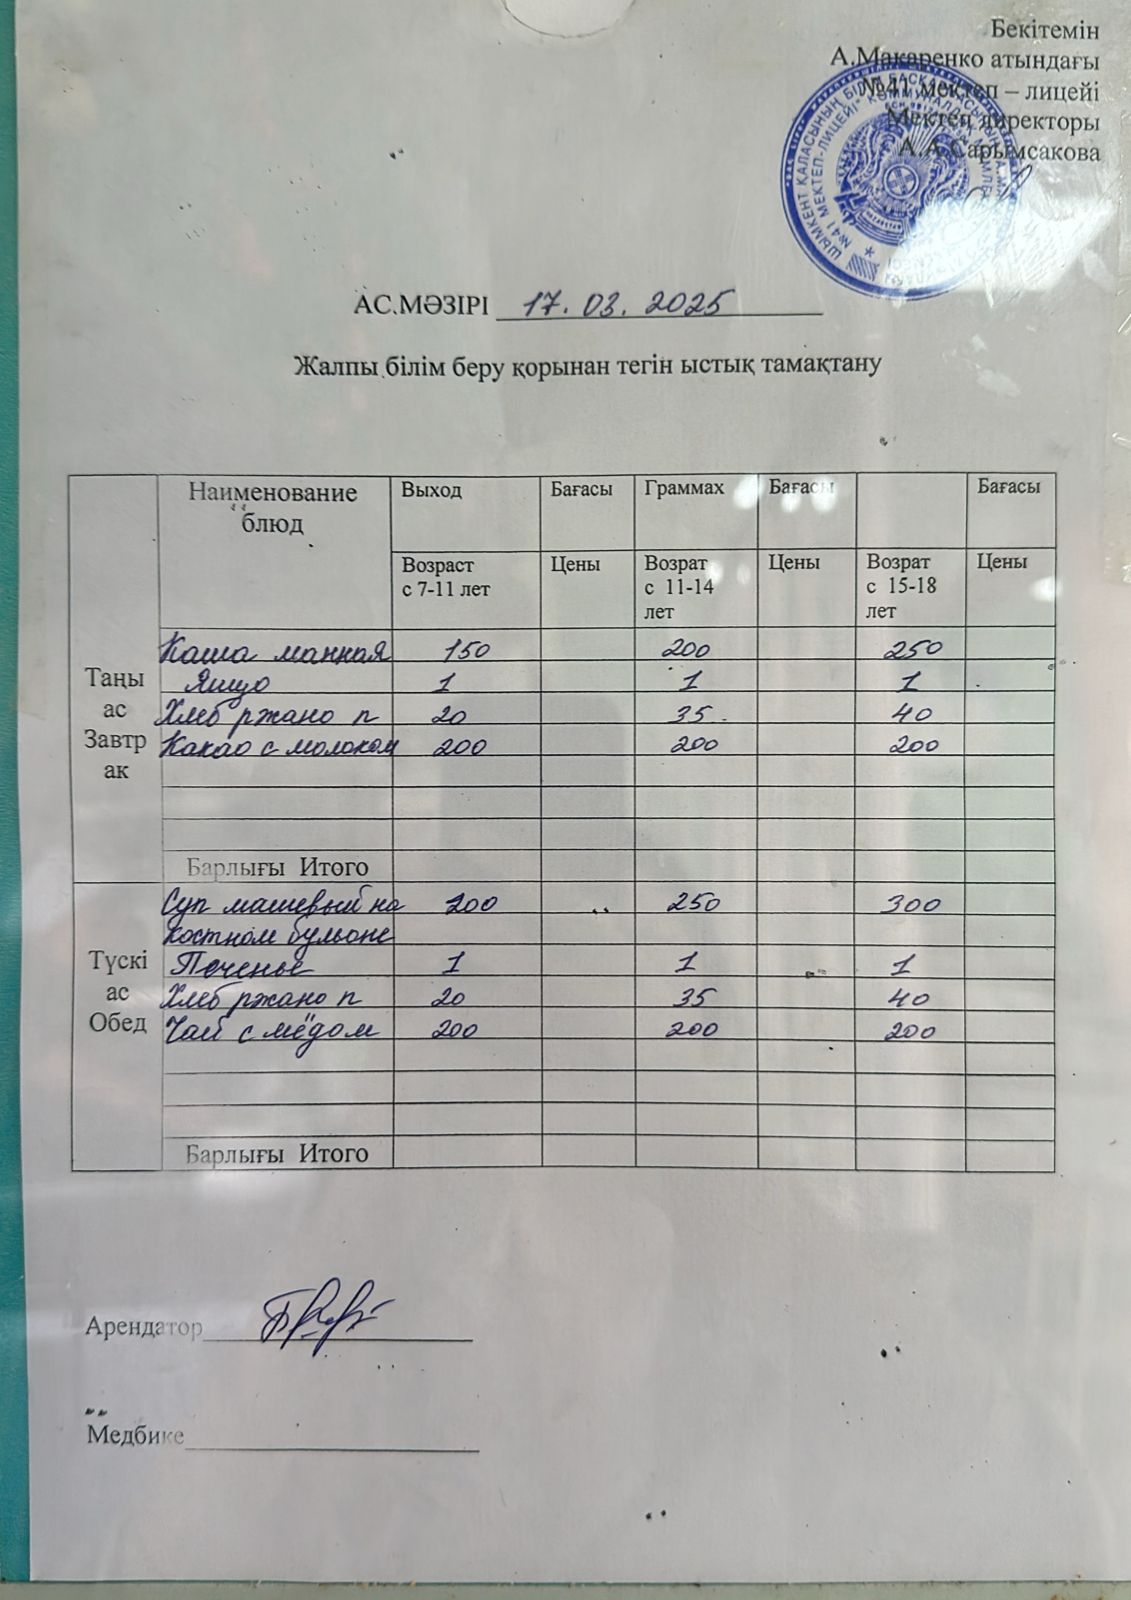 Бекітемін
А.Макаренко атындағы
№41 мектеп – лицейі
Мектеп директоры
А.А.Сарымсакова
АС.МӘЗІРІ 17.03.2025
Жалпы білім беру қорынан тегін ыстық тамақтану
Наименование блюд Выход Бағасы Граммах Бағасы Бағасы
Возраст с 7-11 лет Цены Возрат с 11-14 лет Цены Возрат с 15-18 лет Цены
Таңы ас Завтрак
Каша манная 150 200 250
Яйцо 1 1 1
Хлеб ржано п 20 35 40
Какао с молоком 200 200 200
Барлығы Итого
Түскі ас Обед
Суп машевый на 200 250 300
костном бульоне
Печенье 1 1 1
Хлеб ржано п 20 35 40
Чай с мёдом 200 200 200
Барлығы Итого
Арендатор
Медбике